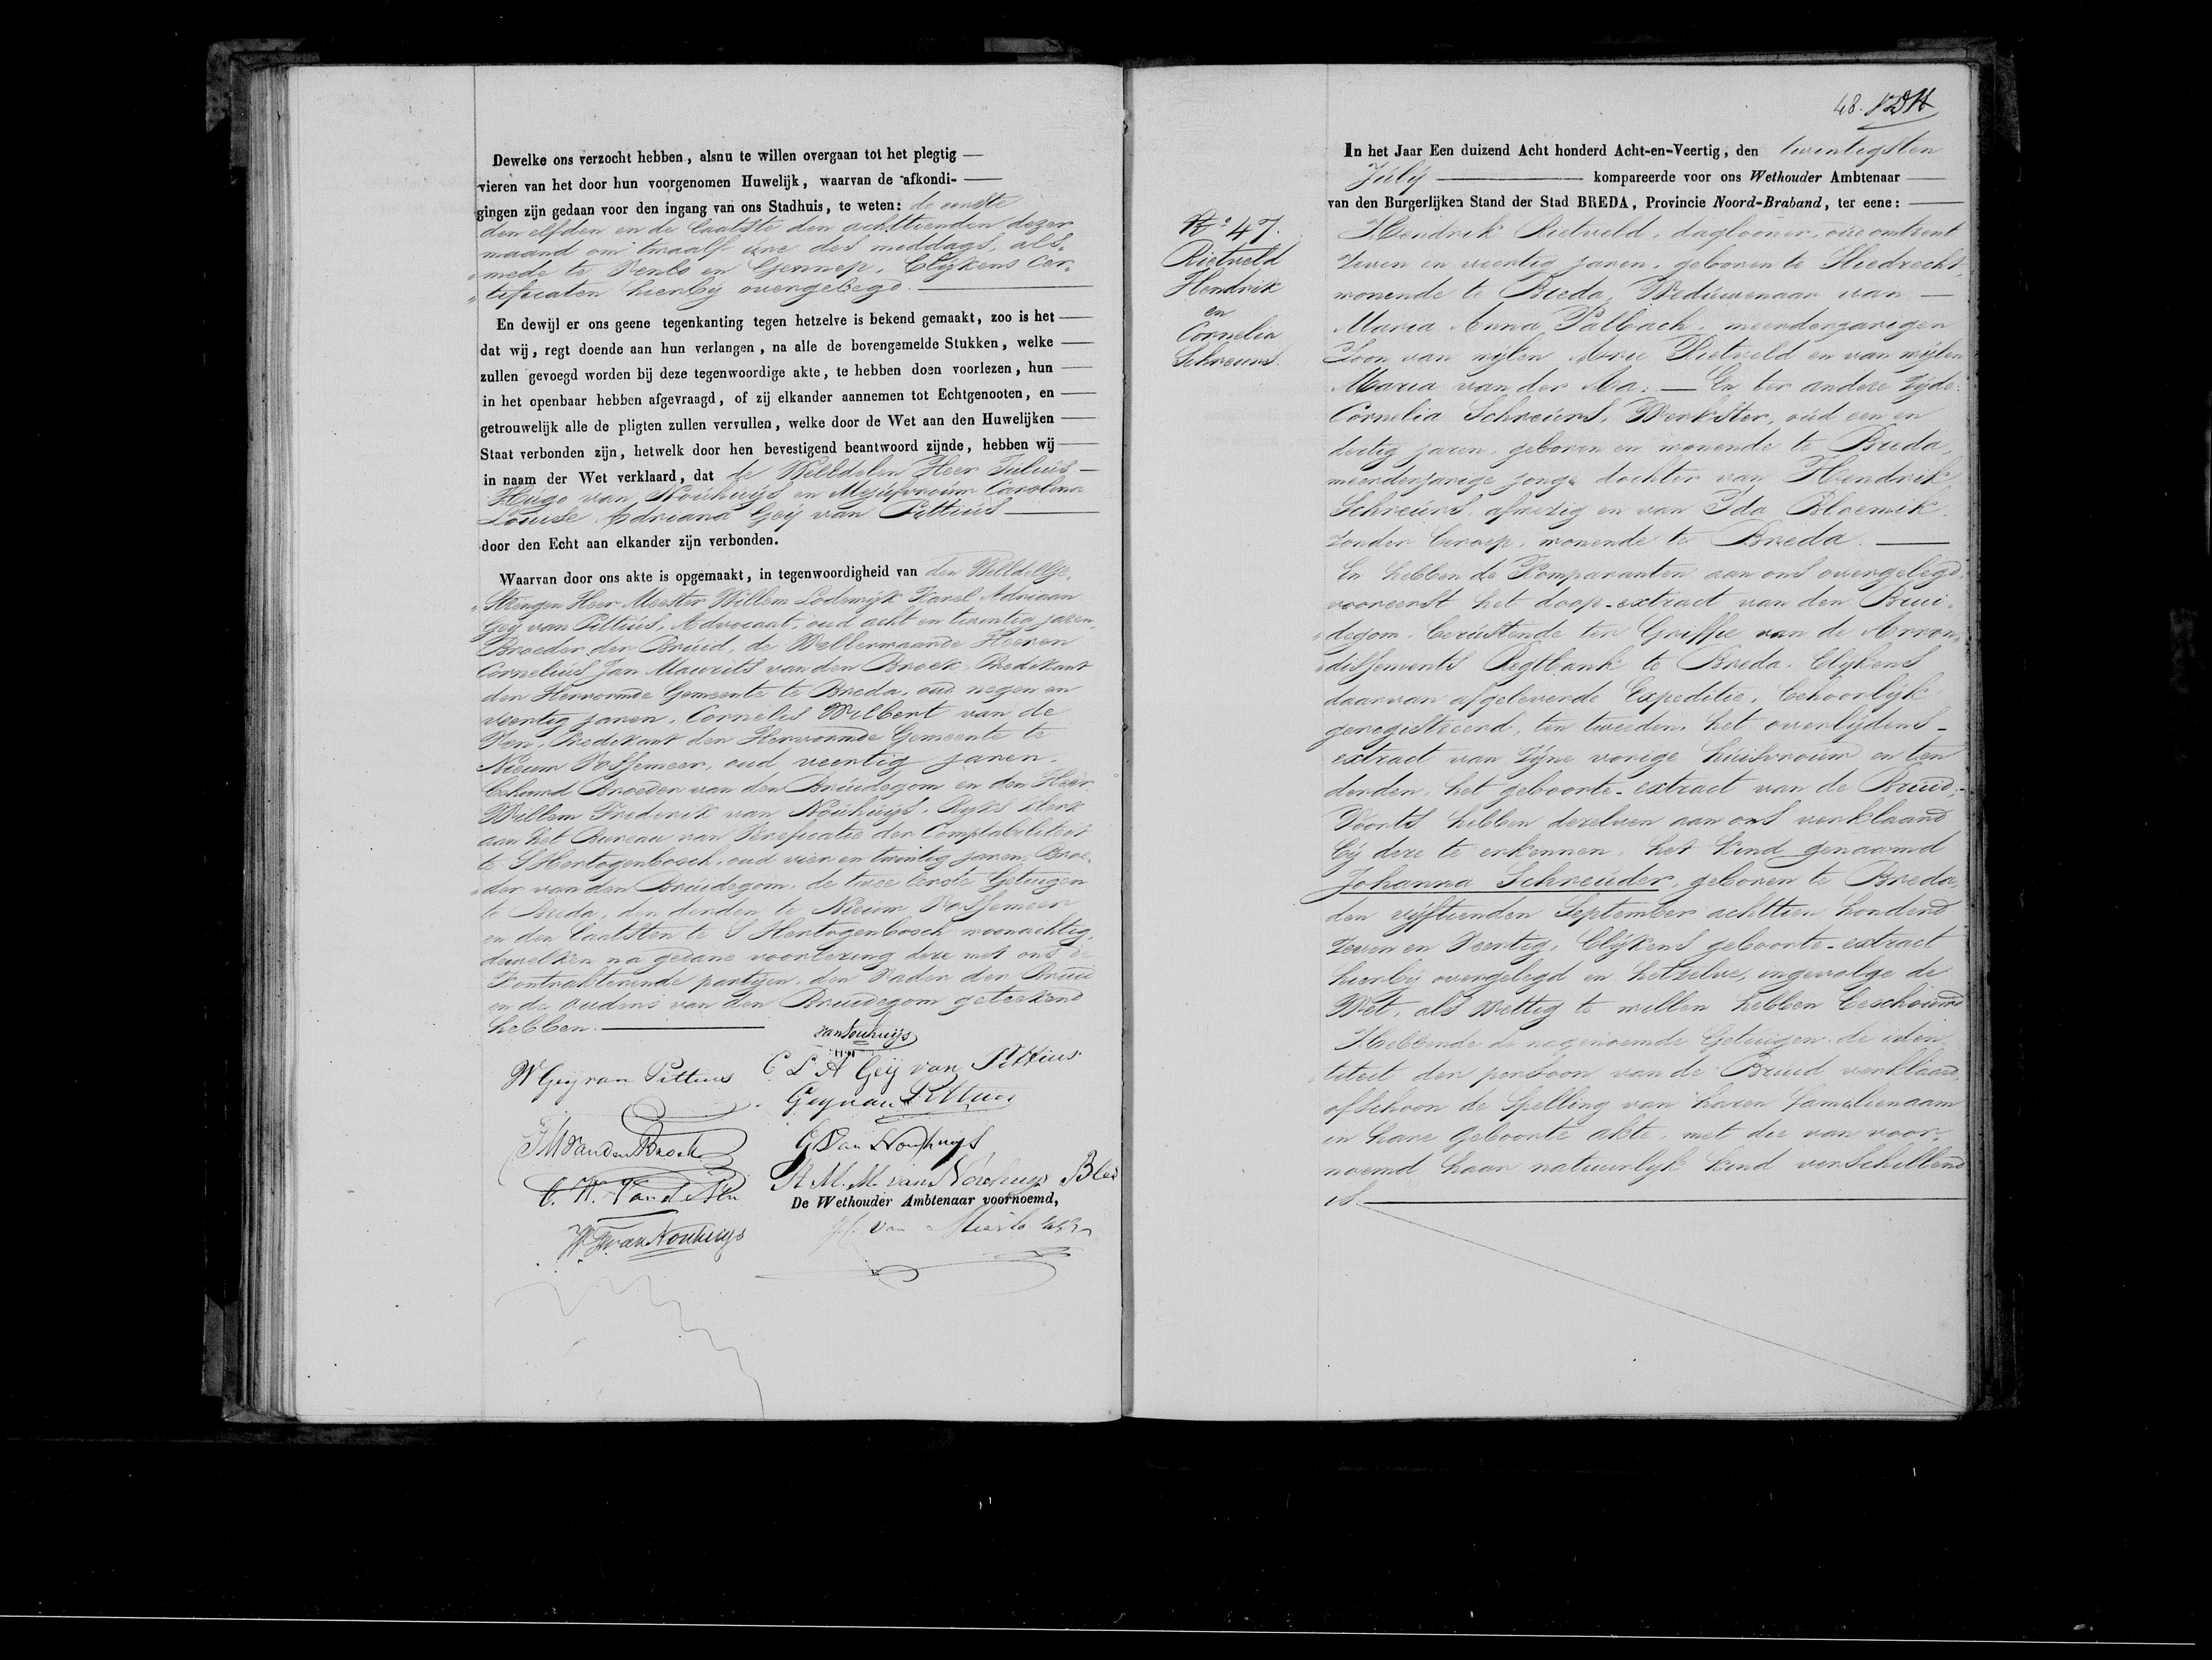 Dewelke ons verzocht hebben, alsnu te willen overgaan tot het plegtig
vieren van het door hun voorgenomen Huwelijk, waarvan de afkondi-
gingen zijn gedaan voor den ingang van ons Stadhuis, te weten: de eerste
den elfden en de laatste den achttienden dezer
maand om twaalf ure des middags, als-
mede te Venlo en Gennep, blijkens Cer-
tificaten hierbij overgelegd.
En dewijl er ons geene tegenkanting tegen hetzelve is bekend gemaakt, zoo is het
dat wij, regt doende aan hun verlangen, na alle de bovengemelde Stukken, welke
zullen gevoegd worden bij deze tegenwoordige akte, te hebben doen voorlezen, hun
in het openbaar hebben afgevraagd, of zij elkander aannemen tot Echtgenooten, en
getrouwelijk alle de pligten zullen vervullen, welke door de Wet aan den Huwelijken
Staat verbonden zijn, hetwelk door hen bevestigend beantwoord zijnde, hebben wij
in naam der Wet verklaard, dat de WelEdelen Heer Julius
Hugo van Nouhuijs en Mejufvrouw Carolina
Louise Adriana Geij van Pittius
door den Echt aan elkander zijn verbonden.
Waarvan door ons akte is opgemaakt, in tegenwoordigheid van den WelEdelGe-
Strengen Heer Meester Willem Lodewijk Karel Adriaan
Geij van Pittius, Advocaat, oud acht en twintig jaren,
Broeder der Bruid, de WelEerwaarde Heeren
Cornelius Jan Maurits van den Broek Predikant
den Hervormde Gemeente te Breda, oud negen en
veertig jaren, Cornelis Wilbert van de
Ven, Predikant den Hervormde Gemeente te
Nieuw Vossemeer, oud veertig jaren,
behuwd Broeder van den Bruidegom en den Heer
Willem Frederik van Nouhuijs, Rijks klerk
aan het Bureau van Verificatie der Comptabiliteit
te S'Hertogenbosch, oud vier en twintig jaren, Broe-
der van den Bruidegom, de twee eerste Getuigen
te Breda, den derden te Nieuw Vossemeer
en den laatsten te S'Hertogenbosch woonachtig,
dewelken na gedane voorlezing deze met ons de
Kontrakterende partijen, den Vader der Bruid
en de ouders van den Bruidegom geteekend
hebben.
van Nouhuijs
W Geij van Pittius C L A Geij van Pittius
Geij van Pittius
CJM van den Broek G van Nouhuijs
C. W. van de Ven A. M. M. van Nouhuijs
De Wethouder Ambtenaar voornoemd,
W F van Nouhuijs van Mierlo
48.
In het Jaar Een duizend Acht honderd Acht-en-Veertig, den twintigsten
Julij kompareerde voor ons Wethouder Ambtenaar
van den Burgerlijken Stand der Stad BREDA, Provincie Noord-Braband, ter eene:
No 47.
Rietveld
Hendrik
en
Cornelia
Schreurs.
Hendrik Rietveld, daglooner, oud omtrent
zeven en veertig jaren, geboren te Sliedrecht,
wonende te Breda, Weduwenaar van
Maria Anna Palbach, meerderjarigen
Zoon van wijlen Arie Rietveld en van wijlen
Maria van der Aa. — En ter andere zijde:
Cornelia Schreurs, Werkster, oud een en
dertig jaren, geboren en wonende te Breda,
meerderjarige jonge dochter van Hendrik
Schreurs, afwezig en van Ida Bloemik,
zonder beroep, wonende te Breda.
En hebben de Komparanten aan ons overgelegd,
vooreerst het doop-extract van den Brui-
degom, berustende ter Griffie van de Arron-
dissements Regtbank te Breda, blijkens
daarvan afgeleverde Expeditie, behoorlijk
geregistreerd, ten tweeden, het overlijdens-
extract van zijne vorige huisvrouw en ten
derden, het geboorte-extract van de Bruid.-
Voorts hebben dezelven aan ons verklaard
bij deze te erkennen, het kind genaamd
Johanna Schreuder, geboren te Breda,
den vijftienden September achttien honderd
zeven en Veertig, blijkens geboorte-extract
hierbij overgelegd en hetzelve, ingevolge de
Wet, als wettig te willen hebben beschouwd
Hebbende de nagenoemde Getuigen de iden-
titeit der persoon van de Bruid verklaard,
ofschoon de Spelling van haren familienaam
in hare Geboorte akte, met die van voor-
noemd haar natuurlyk kind verschillend
is.